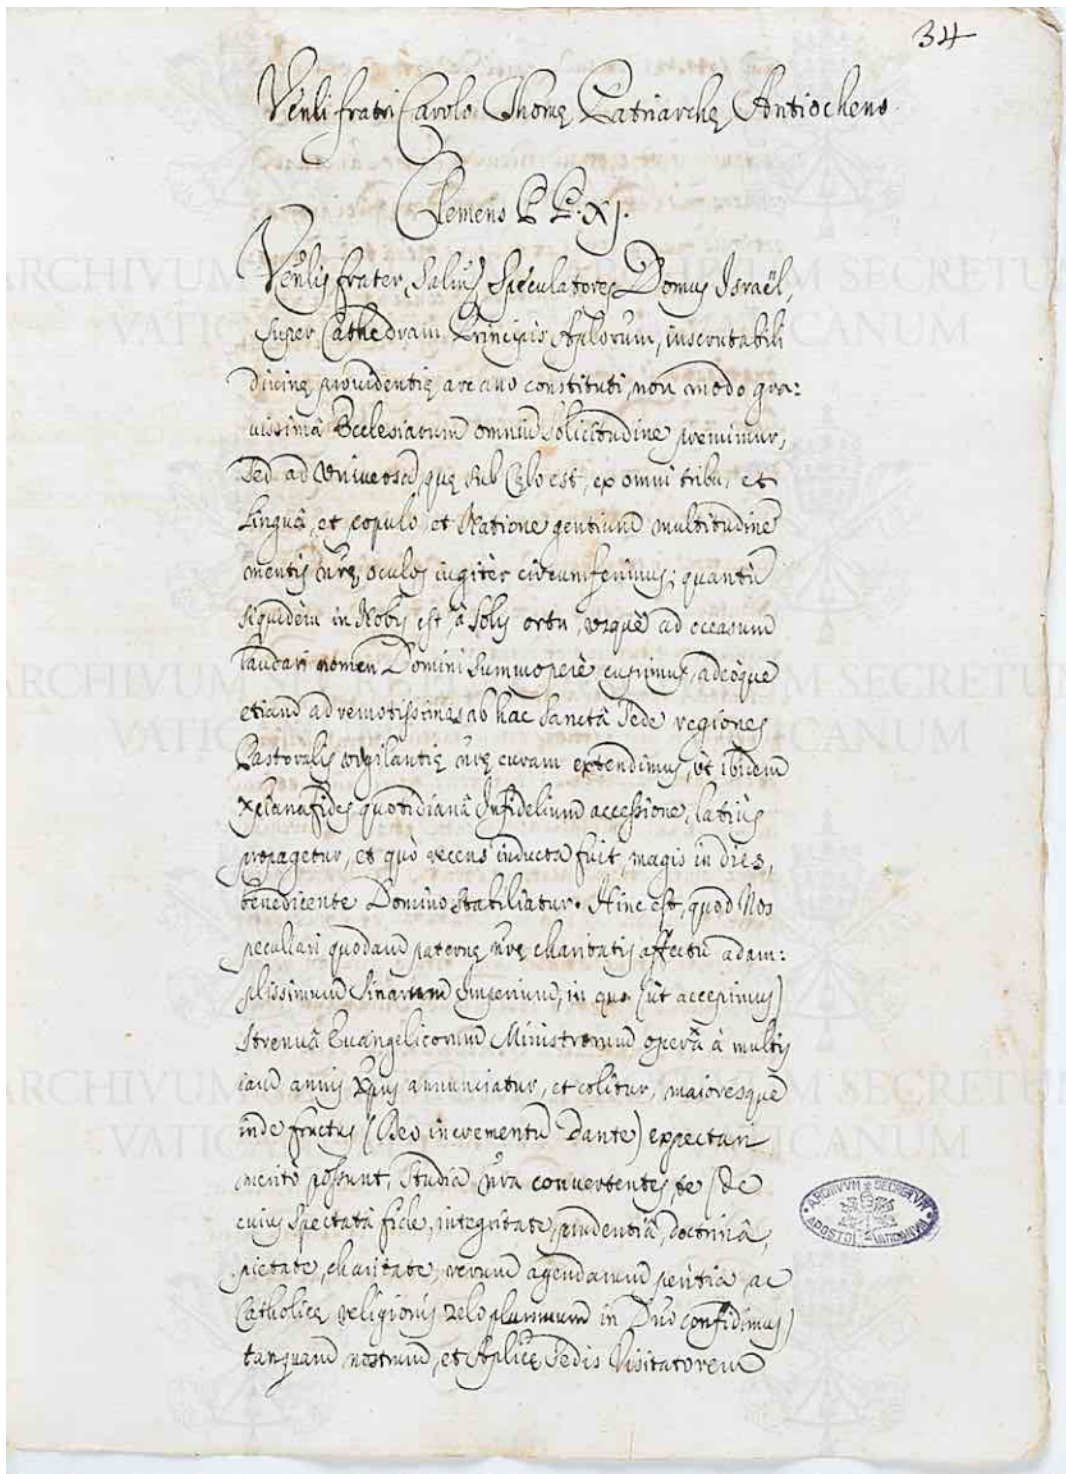 34
Ven̄li fratri Carolo Thomę Patriarchę Antiocheno
Clemens P P. XI.
Ven̄lis frater, Salus Speculatores Domus Israël,
super Cathedram Principis Aplorum, inscrutabili
divinę providentię arcano constituti, non modo gra:
vissimâ Ecclesiarum omniũ sollicitudine premimur,
sed ad universã, quę sub Cęlo est, ex omni tribu, et
linguâ, et populo et Natione gentium multitudinẽ
mentis nr̄ę oculos iugitèr circumferimus; quantũ
siquidèm in Nobis est, à solis ortu, usquè ad occasum
laudari nomen Domini summoperè cupimus, adeòque
etiam ad remotissimas ab hâc Sanctâ Sede regiones
Pastoralis vigilantię nr̄ę curam extendimus, ùt ibidem
Xp̄iana fides quotidianâ Infidelium accessione, latiùs
propagetur, et quò recens inducta fuit, magis in dies,
benedicente Domino stabiliatur. Hinc est, quod Nos
peculiari quodam paternę nr̄ę charitatis affectu ad am:
plissimum Sinarum Imperium, in quo (ùt accepimus)
strenuâ Evangelicorum Ministrorum operâ à multis
iam annis Xp̄us annunciatur, et colitur, maioresquè
inde fructus (Deo incrementũ dante) expectari
meritò possunt, studia nr̄a convertentes, te (de
cuius spectatâ fide, integritate, prudentiâ, doctrinâ,
pietate, charitate, rerum agendarum peritiâ ac
Catholicę religionis zelo plurimum in Dn̄o confidimus)
tanquam nostrum, et Ap̄licę Sedis Visitatorem
ARCHIVUM SECRETUM
APOSTOL. VATICANUM
ARCHIVUM SECRETUM
VATICANUM